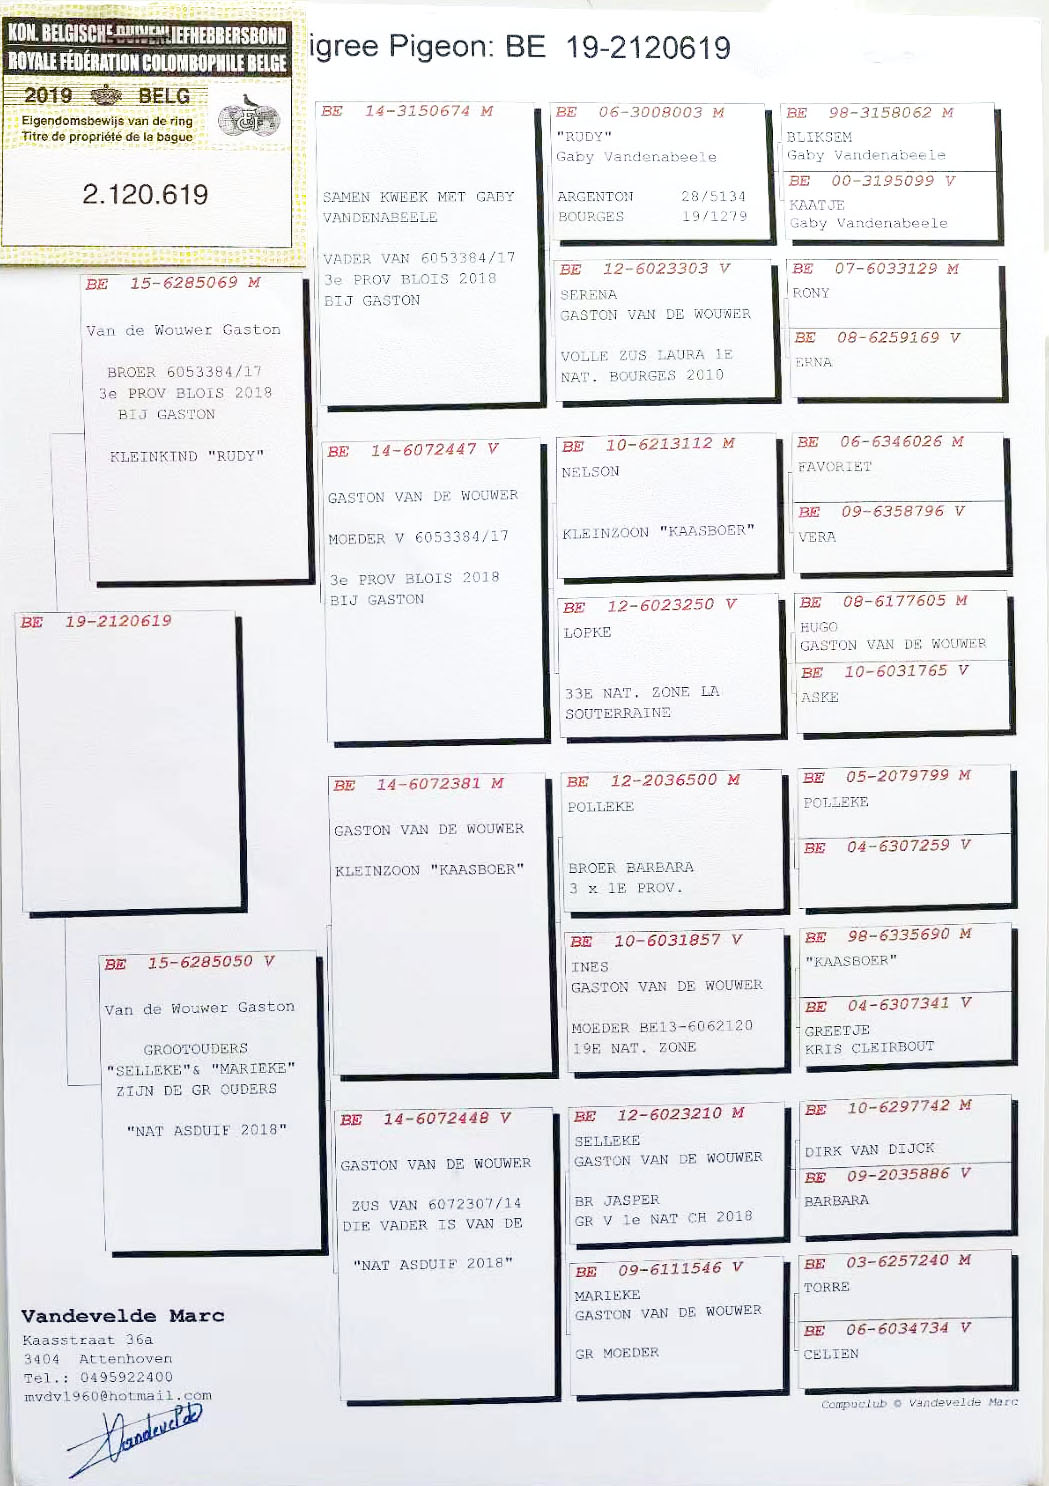 KON. BELGISCHE DUIVENLIEFHEBBERSBOND
ROYALE FÉDÉRATION COLOMBOPHILE BELGE
2019 BELG
Eigendomsbewijs van de ring
Titre de propriété de la bague
2.120.619
igree Pigeon: BE 19-2120619
BE 15-6285069 M
Van de Wouwer Gaston
BROER 6053384/17
3e PROV BLOIS 2018
BIJ GASTON
KLEINKIND "RUDY"
BE 19-2120619
BE 15-6285050 V
Van de Wouwer Gaston
GROOTOUDERS
"SELLEKE"& "MARIEKE"
ZIJN DE GR OUDERS
"NAT ASDUIF 2018"
BE 14-3150674 M
SAMEN KWEEK MET GABY
VANDENABEELE
VADER VAN 6053384/17
3e PROV BLOIS 2018
BIJ GASTON
BE 14-6072447 V
GASTON VAN DE WOUWER
MOEDER V 6053384/17
3e PROV BLOIS 2018
BIJ GASTON
BE 14-6072381 M
GASTON VAN DE WOUWER
KLEINZOON "KAASBOER"
BE 14-6072448 V
GASTON VAN DE WOUWER
ZUS VAN 6072307/14
DIE VADER IS VAN DE
"NAT ASDUIF 2018"
BE 06-3008003 M
"RUDY"
Gaby Vandenabeele
ARGENTON 28/5134
BOURGES 19/1279
BE 12-6023303 V
SERENA
GASTON VAN DE WOUWER
VOLLE ZUS LAURA 1E
NAT. BOURGES 2010
BE 10-6213112 M
NELSON
KLEINZOON "KAASBOER"
BE 12-6023250 V
LOPKE
33E NAT. ZONE LA
SOUTERRAINE
BE 12-2036500 M
POLLEKE
BROER BARBARA
3 x 1E PROV.
BE 10-6031857 V
INES
GASTON VAN DE WOUWER
MOEDER BE13-6062120
19E NAT. ZONE
BE 12-6023210 M
SELLEKE
GASTON VAN DE WOUWER
BR JASPER
GR V 1e NAT CH 2018
BE 09-6111546 V
MARIEKE
GASTON VAN DE WOUWER
GR MOEDER
BE 98-3158062 M
BLIKSEM
Gaby Vandenabeele
BE 00-3195099 V
KAATJE
Gaby Vandenabeele
BE 07-6033129 M
RONY
BE 08-6259169 V
ERNA
BE 06-6346026 M
FAVORIET
BE 09-6358796 V
VERA
BE 08-6177605 M
HUGO
GASTON VAN DE WOUWER
BE 10-6031765 V
ASKE
BE 05-2079799 M
POLLEKE
BE 04-6307259 V
BE 98-6335690 M
"KAASBOER"
BE 04-6307341 V
GREETJE
KRIS CLEIRBOUT
BE 10-6297742 M
DIRK VAN DIJCK
BE 09-2035886 V
BARBARA
BE 03-6257240 M
TORRE
BE 06-6034734 V
CELIEN
Vandevelde Marc
Kaasstraat 36a
3404 Attenhoven
Tel.: 0495922400
mvdv1960@hotmail.com
Vandevelde
Compuclub © Vandevelde Marc